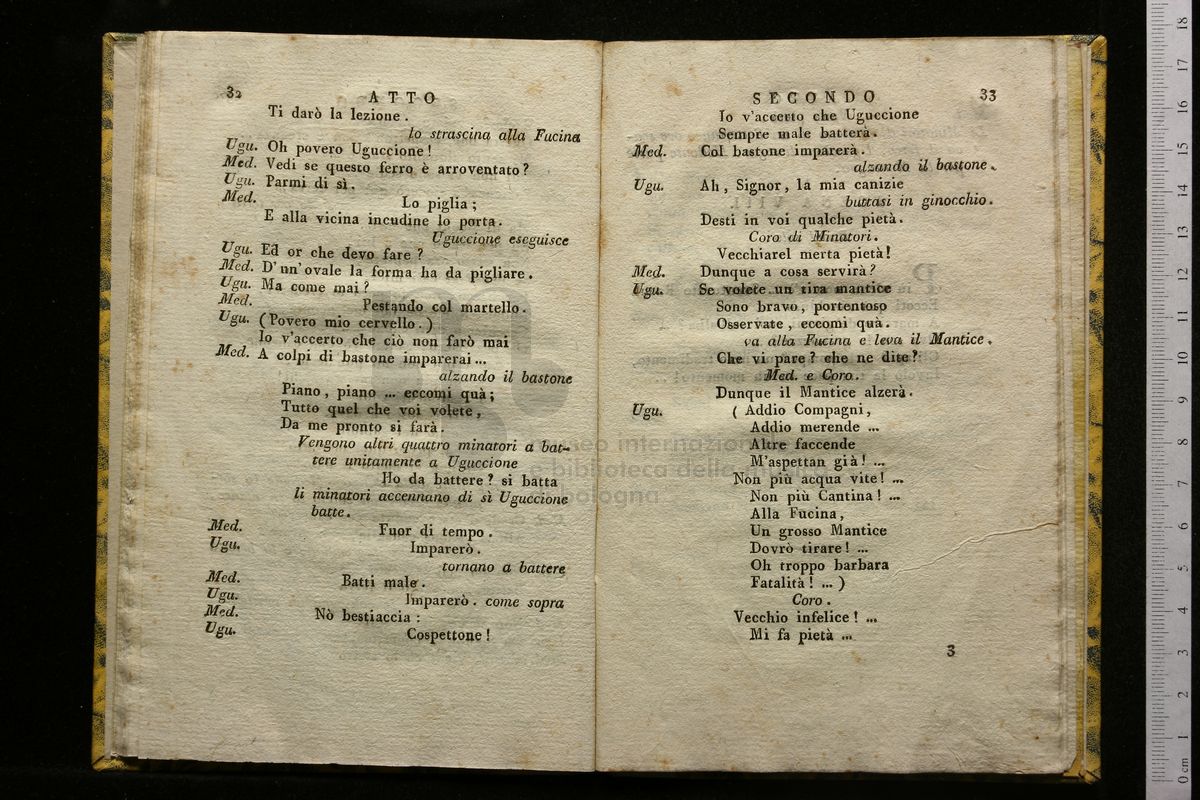 32
ATTO
Ti darò la lezione.
lo strascina alla Fucina
Ugu. Oh povero Uguccione!
Med. Vedi se questo ferro è arroventato?
Ugu. Parmi di sì.
Med. Lo piglia;
E alla vicina incudine lo porta.
Uguccione eseguisce
Ugu. Ed or che devo fare?
Med. D'un'ovale la forma ha da pigliare.
Ugu. Ma come mai?
Med. Pestando col martello.
Ugu. (Povero mio cervello.)
Io v'accerto che ciò non farò mai
Med. A colpi di bastone imparerai...
alzando il bastone
Piano, piano ... eccomi quà;
Tutto quel che voi volete,
Da me pronto si farà.
Vengono altri quattro minatori a bat-
tere unitamente a Uguccione
Ho da battere? si batta
li minatori accennano di sì Uguccione
batte.
Med. Fuor di tempo.
Ugu. Imparerò.
tornano a battere
Med. Batti male.
Ugu. Imparerò. come sopra
Med. Nò bestiaccia:
Ugu. Cospettone!
SECONDO
33
Io v'accerto che Uguccione
Sempre male batterà.
Med. Col bastone imparerà.
alzando il bastone.
Ugu. Ah, Signor, la mia canizie
buttasi in ginocchio.
Desti in voi qualche pietà.
Coro di Minatori.
Vecchiarel merta pietà!
Med. Dunque a cosa servirà?
Ugu. Se volete un tira mantice
Sono bravo, portentoso
Osservate, eccomi quà.
va alla Fucina e leva il Mantice.
Che vi pare? che ne dite?
Med. e Coro.
Dunque il Mantice alzerà.
Ugu. (Addio Compagni,
Addio merende ...
Altre faccende
M'aspettan già! ...
Non più acqua vite! ...
Non più Cantina! ...
Alla Fucina,
Un grosso Mantice
Dovrò tirare! ...
Oh troppo barbara
Fatalità! ...)
Coro.
Vecchio infelice! ...
Mi fa pietà ...
3
museo internazion
e biblioteca della
bologna
0 cm 1 2 3 4 5 6 7 8 9 10 11 12 13 14 15 16 17 18